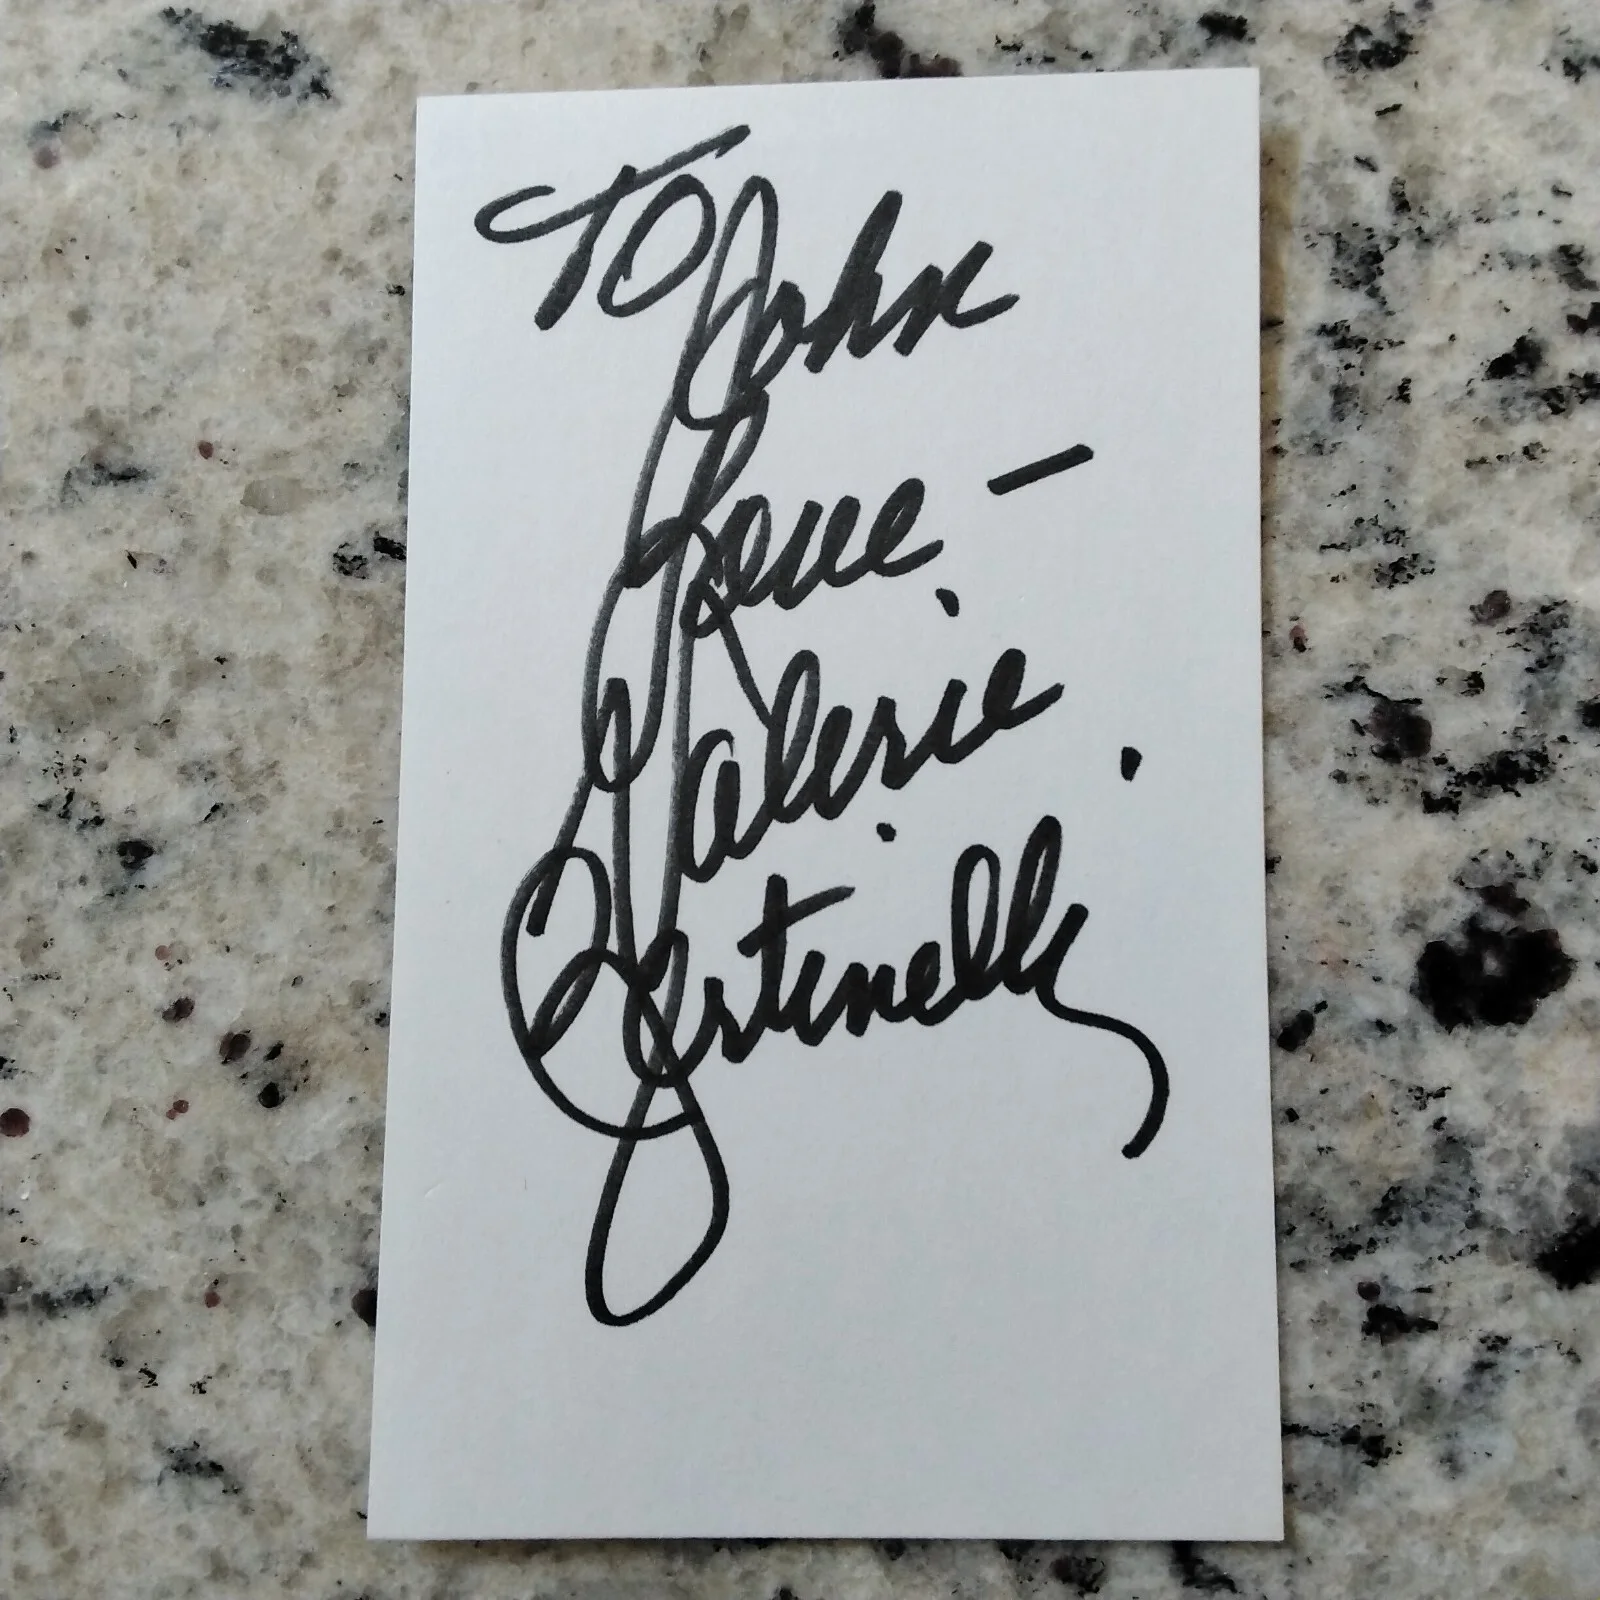 To John
Love -
Valerie
Bertinelli